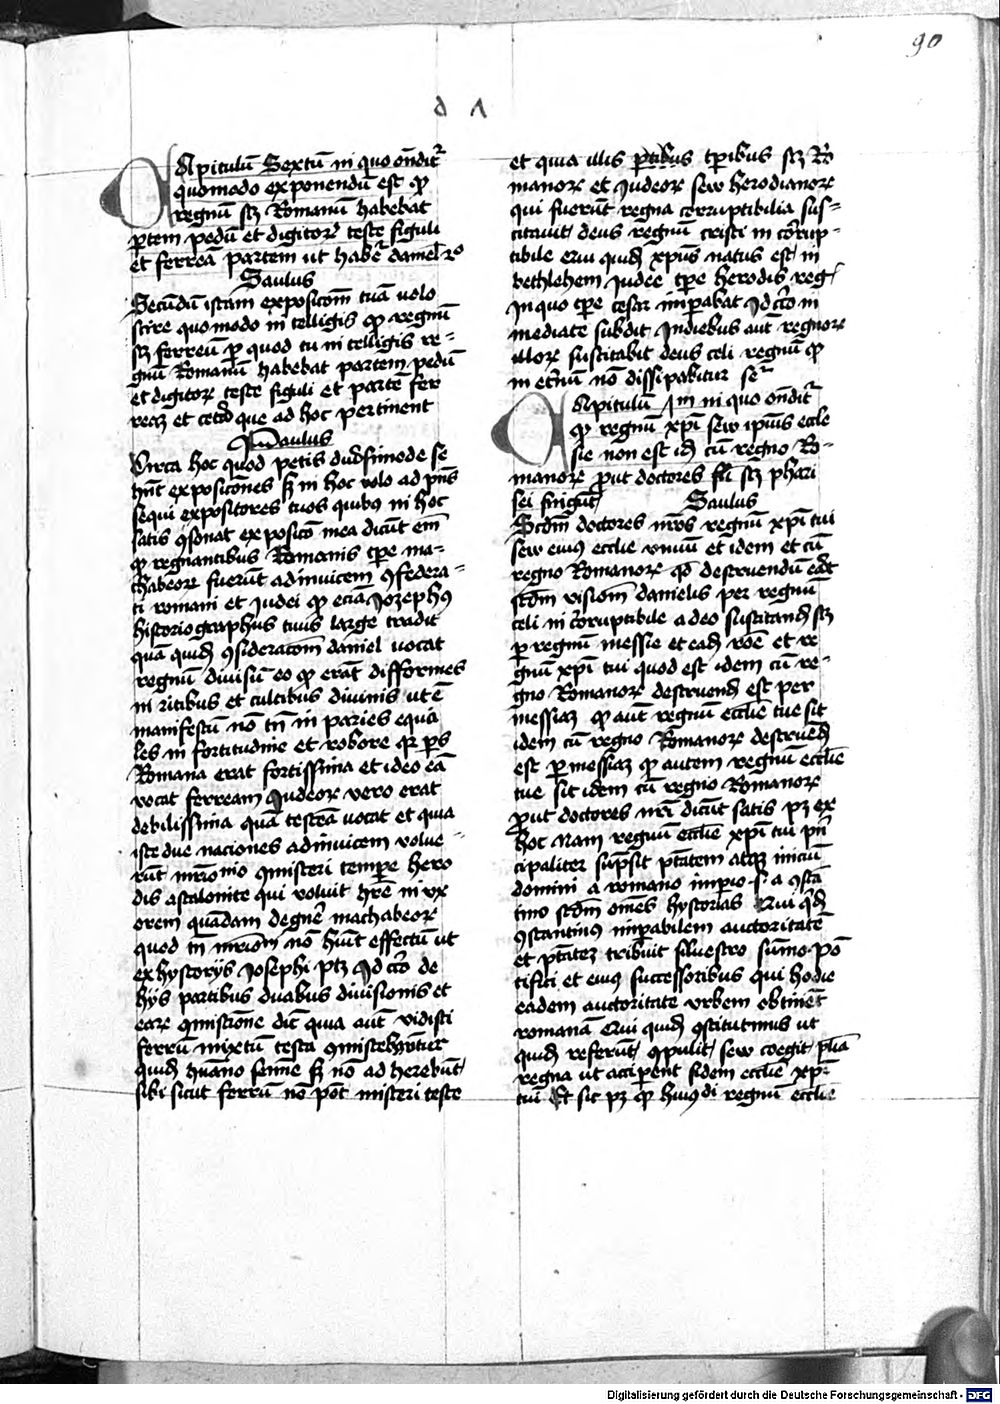 90
d A
Capitulū Sextū in quo ondit᷑
quomodo exponendū est ꝙ
regnū scꝫ Romanū habebat
ꝑtem pedū et digitoꝝ teste figuli
et ferreā partem ut habet᷑ daniel 2º
Saulus
Secūdū istam expositōm tuā volo
scire quomodo intelligis ꝙ regnū
scꝫ ferreū ꝑ quod tu intelligis re-
gnū Romanū habebat partem pedū
et digitoꝝ teste figuli et partē fer
reaꝫ et cetera que ad hoc pertinent
Paulus
Circa hoc quod petis diversimode se
hn̄t expositōnes sꝫ in hoc volo ad pn̄s
sequi expositores tuos quibꝰ in hoc
satis ꝯsonat expositō mea dicūt em̄
ꝙ regnantibus Romanis tꝑe ma-
chabeoꝝ fuerūt adinvicem ꝯfedera-
ti romani et Judei ꝙ eciā Jozephꝰ
historiographus tuus large tradit
quā quidē ꝯsideratōm daniel vocat
regnū divisū eo ꝙ erāt difformes
in ritibus et cultibus divinis ut ē
manifestū nō tn̄ in paries equa
les in fortitudine et robore qꝛ ꝑs
Romana erat fortissima et ideo eā
vocat ferream Judeoꝝ vero erat
debilissima quā testeā vocat et quia
iste due naciones adinvicem volue-
rūt mr̄monio ꝯmisceri tempꝑe Hero
dis ascalonite qui voluit hr̄e in ux
orem quādam de gnē machabeoꝝ
quod tn̄ mr̄iom nō hūit effectū ut
ex hystorijs Josephi ptꝫ Idcirco de
hijs partibus duabus divisionis et
eaꝝ ꝯmistiōne dic̄ quia aūt vidisti
ferrū mixtū testa ꝯmiscebūtur
quidē hūano semīe sꝫ nō adherebūt
sibi sicut ferrū nō pōt misceri teste
et quia illis ꝑtibus tꝑibus scꝫ Ro
manoꝝ et Judeoꝝ seu herodianoꝝ
qui fuerūt regna corruptibilia sus-
citavit deus regnū cristi incorrup-
tibile cuiꝰ quidē xp̄us natus est in
bethlehem Judee tꝑe herodis reg
In quo tꝑe cesar imꝑabat Idcirco in
mediate subdit In diebus aūt regnoꝝ
illoꝝ suscitabit deus celi regnū ꝙ
in et̄nū nō dissipabitur
Capitulū 7m in quo ondit᷑
ꝙ regnū xp̄i seu ipius eccle
sie non est idē cū regno Ro-
manoꝝ ꝓut doctores scꝫ phari
sei fingūt
Saulus
Scd̄m doctores nr̄os regnū xp̄i tui
seu eiuꝰ ecclie unuū et idem et cū
regno Romanoꝝ qd̄ destruendū erat
scd̄m visiom̄ danielis per regnū
celi incorruptibile a deo suscitandū scꝫ
ꝑ regnū messie et eadē rōe et re
gnū xp̄i tui quod est idem cū re-
gno Romanoꝝ destruendū est per
messiaꝫ ꝙ aūt regnū ecclie tue sit
idem cū regno Romanoꝝ destruendū
est ꝑ messiaꝫ ꝙ autem regnū ecclie
tue sit idem cū regno Romanoꝝ
ꝓut doctores nr̄i dicūt satis pꝫ ex
hoc Nam regnū ecclie xp̄i tui pn̄
cipaliter sūpsit ptātem atqꝫ iniciū
domini a romano imꝑio .s. a ꝯsta
tino scd̄m om̄es hystorias Qui qd̄
ꝯstantinus imꝑabilem auctoritatē
et ptātez tribuit silvestro sūmo pō
tifici et eiuꝰ successoribus qui hodie
eadem auctoritate urbem obtinēt
romanā Qui quidē ꝯstantinus ut
quidē referūt ꝯpulit seu coegit
regna ut acciperent fidem ecclie xpi
tui Et sic pꝫ ꝙ huiꝰdi regnū ecclie
Digitalisierung gefördert durch die Deutsche Forschungsgemeinschaft - DFG